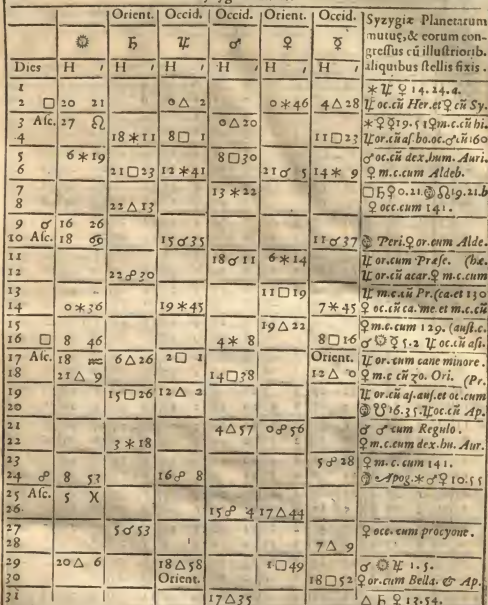 Orient. Occid. Occid. Orient. Occid. Syzygiæ Planetarum
☼ ♄ ♃ ♂ ♀ ☿ mutuę, & eorum con-
gressus cū illustriorib.
Dies H ′ H ′ H ′ H ′ H ′ H ′ aliquibus stellis fixis.
1 ⚹ ♃ ♀ 14.24.4.
2 □ 20 21 0 △ 2 0 ⚹ 46 4 △ 28 ♃ oc.cū Her.et ♀ cū Sy.
3 Asc. 27 ♌ 0 △ 20
4 18 ⚹ 11 8 □ 1 11 □ 23
5 6 ⚹ 19 8 □ 30 ♂ oc.cū dex.hum. Auri.
6 21 □ 23 12 ⚹ 41 21 ☌ 5 14 ⚹ 9 ♀ m.c.cum Aldeb.
7 13 ⚹ 22 □ ♄ ♀ 0.21. ☊ 19.21.
8 22 △ 13 ♀ occ.cum 141.
9 ☌ 16 26
10 Asc. 18 ♋ 15 ☌ 35 11 ☌ 37 Peri. ♀ or.cum Alde.
11 18 ☌ 11 6 ⚹ 14 ♃ or.cum Præse. (hæ.
12 22 ☍ 30 ♃ or.cū acar. ♀ m.c.cum
13 11 □ 19 ♃ m.c.cū Pr.(ca.et 130
14 0 ⚹ 36 19 ⚹ 45 7 ⚹ 45 ♀ oc.cū ca. me.et m.c.cū
15 19 △ 22 ♀ m.c.cum 129. (aust.c.
16 □ 8 46 4 ⚹ 8 8 □ 16 ☌ ☼ ☿ 5.2 ♃ oc.cū asi.
17 Asc. 18 ♒ 6 △ 26 2 □ 1 Orient. ♃ or.cum cane minore.
18 21 △ 9 14 □ 38 12 △ 0 ♀ m.c cū 30. Ori. (Pr.
19 15 □ 26 12 △ 2 ♃ or.cū as.aus.et oc.cum
20 ☋ 16.35. ♃ oc.cū Ap.
21 4 △ 57 0 ☍ 56 ☌ ♂ cum Regulo.
22 3 ⚹ 18 ♀ m.c.cum dex.hu. Aur.
23 5 ☍ 28 ♀ m.c.cum 141.
24 ☍ 8 53 16 ☍ 8 Apog. ⚹ ♂ ♀ 10.55
25 Asc. 5 ♓
26 15 ☍ 4 17 △ 44
27 5 ☌ 53 ♀ occ.cum procyone.
28 7 △ 9
29 20 △ 6 18 △ 58 1 □ 49 ☌ ☼ ♃ 1.5.
30 Orient. 18 □ 52 ♀ or.cum Bella. & Ap.
31 17 △ 35 △ ♄ ♀ 13.54.